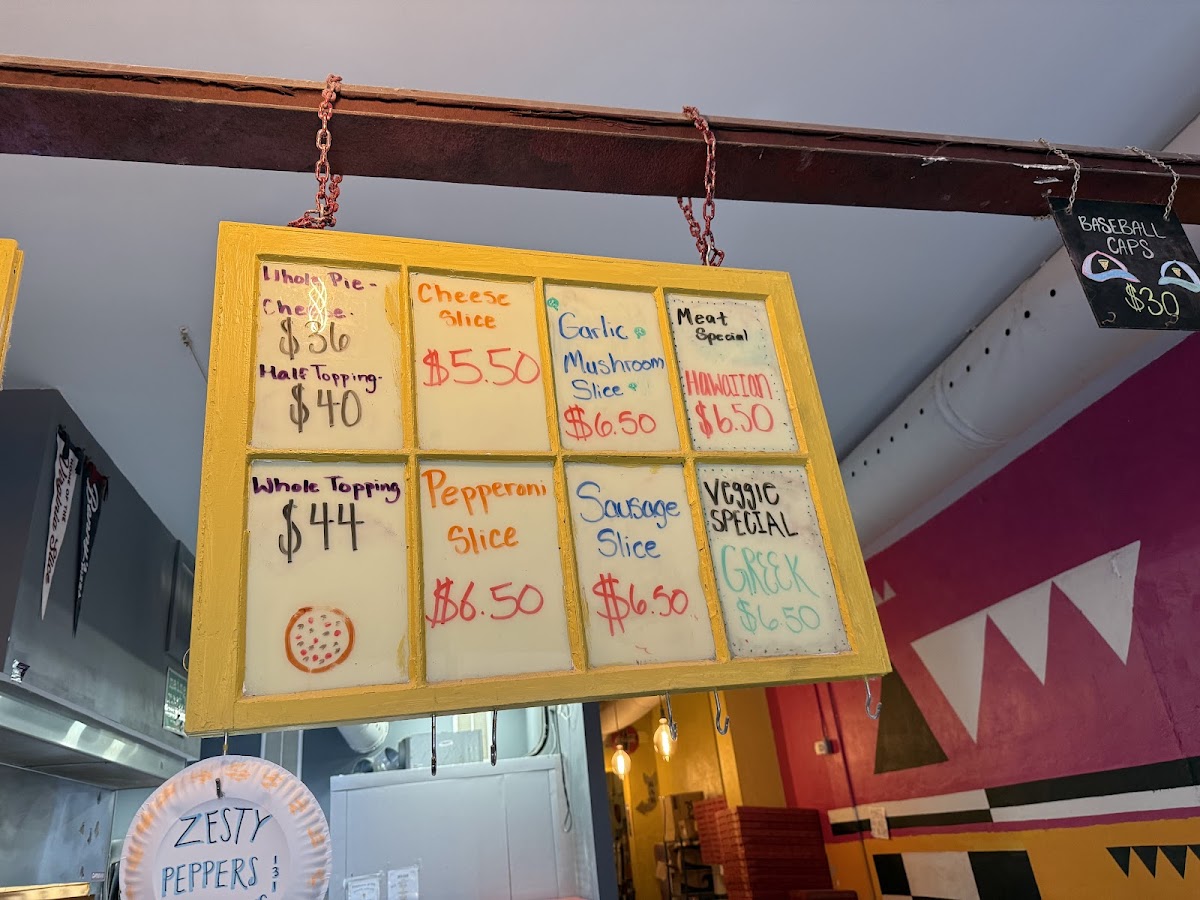 Whole Pie -
Cheese -
$36
Half Topping -
$40
Cheese
Slice
$5.50
Garlic
Mushroom
Slice
$6.50
Meat
Special
HAWAIIAN
$6.50
Whole Topping
$44
Pepperoni
Slice
$6.50
Sausage
Slice
$6.50
Veggie
SPECIAL
GREEK
$6.50
BASEBALL
CAPS
$30
ZESTY
PEPPERS